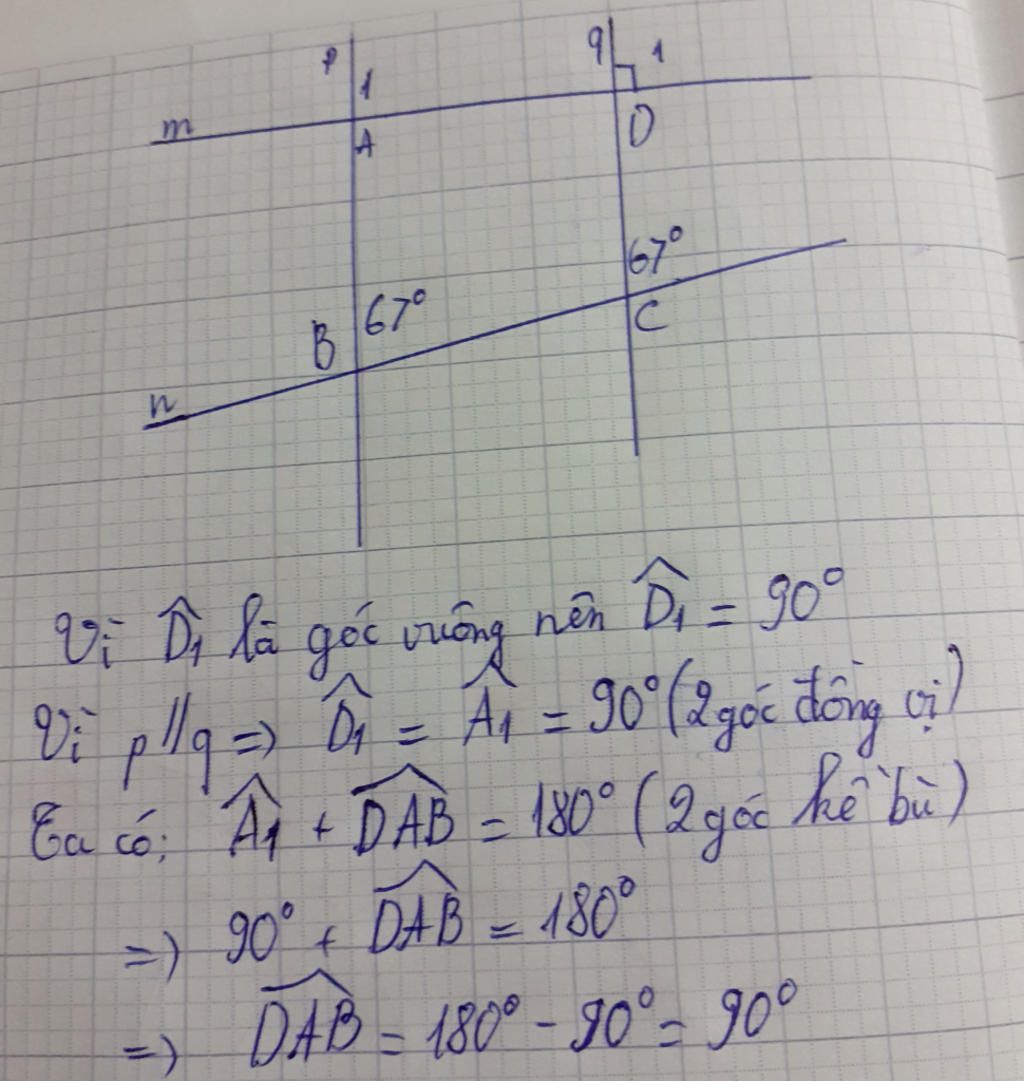 p 1 q 1
m A D
67°
B 67° C
n
Vì D̂₁ là góc vuông nên D̂₁ = 90°
Vì p//q => D̂₁ = Â₁ = 90° (2 góc đồng vị)
Ta có: Â₁ + D͡AB = 180° (2 góc kề bù)
=> 90° + D͡AB = 180°
=> D͡AB = 180° - 90° = 90°